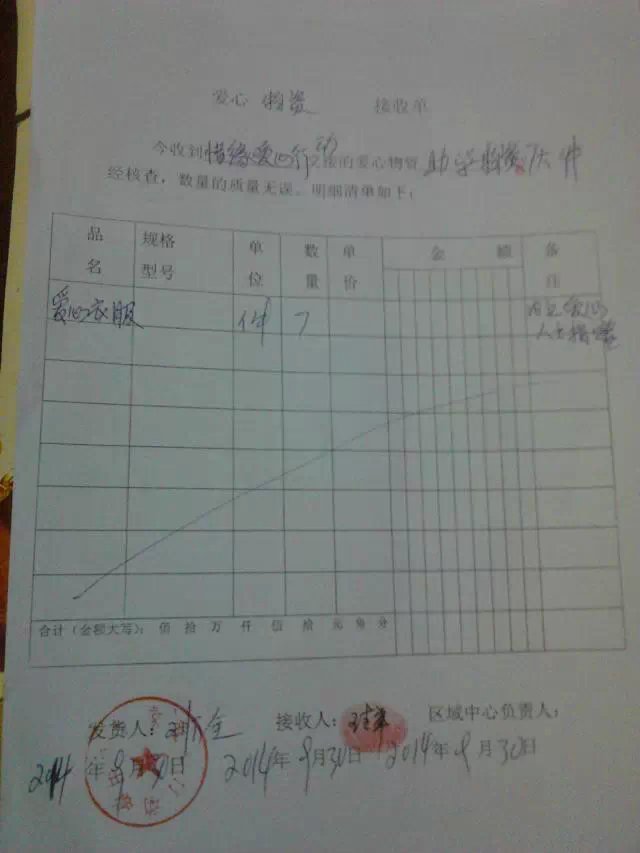 爱心 物资 接收单
今收到惜缘爱心行动交接的爱心物资 助学物资7大件
经核查，数量的质量无误。明细清单如下：
品名 规格型号 单位 数量 单价 金额 备注
爱心衣服 件 7 爱心人士捐赠
合计（金额大写）： 佰 拾 万 仟 佰 拾 元 角 分
发货人： 接收人： 区域中心负责人：
2014年9月30日 2014年9月30日 2014年9月30日